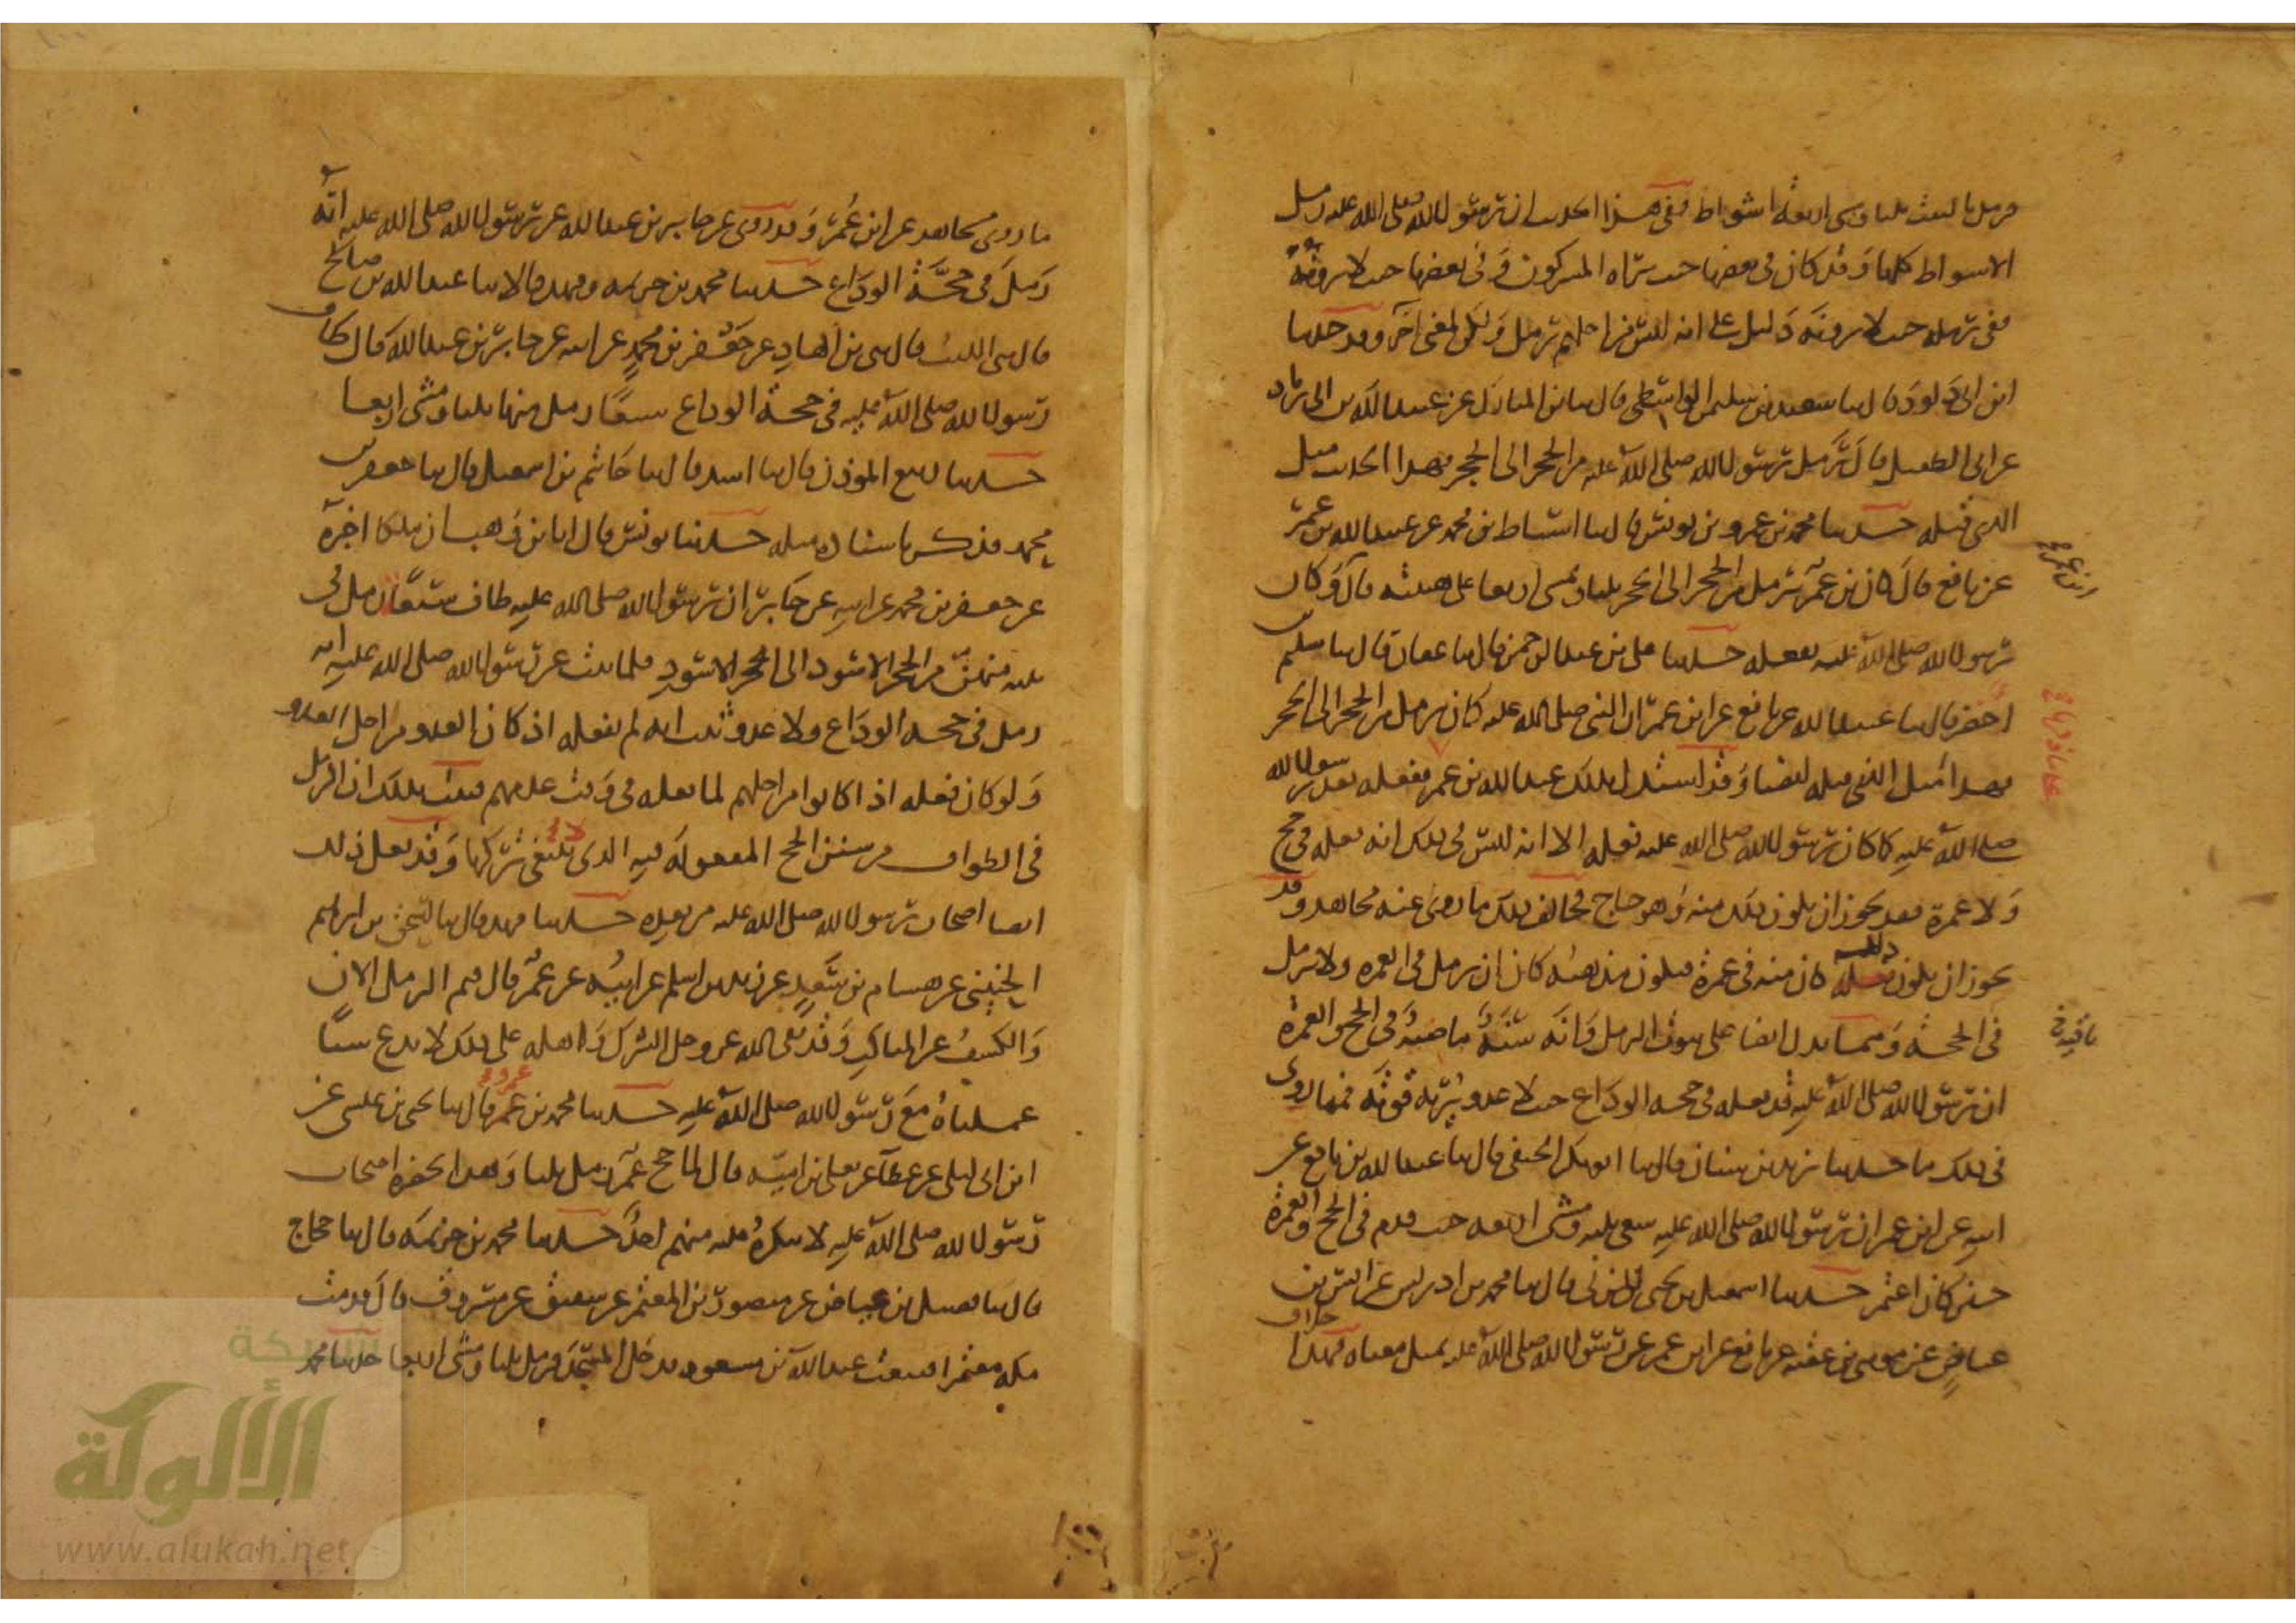 فرمل بالبيت ثلثا ومشى اربعة اشواط ففى هذا الحديث ان رسول الله صلى الله عليه رمل
الاشواط كلها وقد كان فى بعضها حيث يراه المشركون وفى بعضها حيث لا يرونه
ففى رمله حيث لا يرونه دليل على انه ليس من اجلهم رمل ولكن لمعنى آخر وقد حدثنا
ابن ابى داود قال ثنا سعيد بن سليمن الواسطى قال ثنا بن المبارك عن عبيد الله بن ابى زياد
عن ابى الطفيل قال رمل رسول الله صلى الله عليه من الحجر الى الحجر فهذا الحديث مثل
الذى قبله حدثنا محمد بن عمرو بن يونس قال ثنا اسباط بن محمد عن عبيد الله بن عمر
عن نافع قال كان بن عمر يرمل من الحجر الى الحجر ثلثا ويمشى اربعا على هينته قال وكان
رسول الله صلى الله عليه يفعله حدثنا على بن عبد الرحمن قال ثنا عفان قال ثنا سليم بن
اخضر قال ثنا عبيد الله عن نافع عن ابن عمر ان النبى صلى الله عليه كان يرمل من الحجر الى الحجر
فهذا مثل الذى قبله ايضا وقد استدل بذلك عبد الله بن عمر ففعله بعد رسول الله
صلى الله عليه كما كان رسول الله صلى الله عليه يفعله الا انه ليس فى ذلك انه فعله فى حج
ولا عمرة فقد يجوز ان يكون ذلك منه وهو حاج يخالف ذلك ما روى عنه مجاهد وقد
يجوز ان يكون ذلك كان منه فى عمرة فيكون مذهبه كان ان يرمل فى العمرة ولا يرمل
فى الحجة ومما يدل ايضا على ثبوت الرمل وانه سنة ماضية فى الحج والعمرة
ان رسول الله صلى الله عليه قد فعله فى حجة الوداع حيث لا عدو يريه قوته فمما روى
فى ذلك ما حدثنا يزيد بن سنان قال ثنا ابو بكر الحنفى قال ثنا عبد الله بن نافع عن
ابيه عن ابن عمر ان رسول الله صلى الله عليه سعى ثلثة ومشى اربعة حين قدم فى الحج والعمرة
حين كان اعتمر حدثنا اسمعيل بن يحيى المزنى قال ثنا محمد بن ادريس عن انس بن
عياض عن موسى بن عقبة عن نافع عن ابن عمر عن رسول الله صلى الله عليه بمثل معناه فهذا خلاف
ما روى مجاهد عن ابن عمر وقد روى عن جابر بن عبد الله عن رسول الله صلى الله عليه انه
رمل فى حجة الوداع حدثنا محمد بن خزيمة وفهد قالا ثنا عبد الله بن صالح
قال ثنى الليث قال ثنى بن الهاد عن جعفر بن محمد عن ابيه عن جابر بن عبد الله قال طاف
رسول الله صلى الله عليه فى حجة الوداع سبعا رمل منها ثلثا ومشى اربعا
حدثنا ربيع المؤذن قال ثنا اسد قال ثنا حاتم بن اسمعيل قال ثنا جعفر بن
محمد فذكر باسناده مثله حدثنا يونس قال انا بن وهب ان ملكا اخبره
عن جعفر بن محمد عن ابيه عن جابر ان رسول الله صلى الله عليه طاف سبعا رمل فى
ثلثة منهن من الحجر الاسود الى الحجر الاسود فلما ثبت عن رسول الله صلى الله عليه انه
رمل فى حجة الوداع ولا عدو ثبت انه لم يفعله اذ كان العدو من اجل العدو
ولو كان فعله اذ كانوا من اجلهم لما فعله فى وقت عدمهم فثبت بذلك ان الرمل
فى الطواف من سنن الحج المفعولة فيه الذى لا ينبغى تركها وقد فعل ذلك
ايضا اصحاب رسول الله صلى الله عليه من بعده حدثنا فهد قال ثنا اسحق بن ابرهيم
الحنينى عن هشام بن سعد عن زيد بن اسلم عن ابيه عن عمر قال فيم الرمل الان
والكشف عن المناكب وقد نفى الله عز وجل الشرك واهله على ذلك لا ندع شيئا
عملناه مع رسول الله صلى الله عليه حدثنا محمد بن عمرو قال ثنا يحيى بن عيسى عن
ابن ابى ليلى عن عطاء عن يعلى بن امية قال لما حج عمر رمل ثلثا وهذا بحضرة اصحاب
رسول الله صلى الله عليه لا ينكره عليه منهم احد حدثنا محمد بن خزيمة قال ثنا حجاج
قال ثنا فضيل بن عياض عن منصور بن المعتمر عن شقيق عن مسروق قال قدمت
مكة معتمرا فتبعت عبد الله بن مسعود فدخل المسجد فرمل ثلثا ومشى اربعا حدثنا محمد
شبكة
الألوكة
www.alukah.net